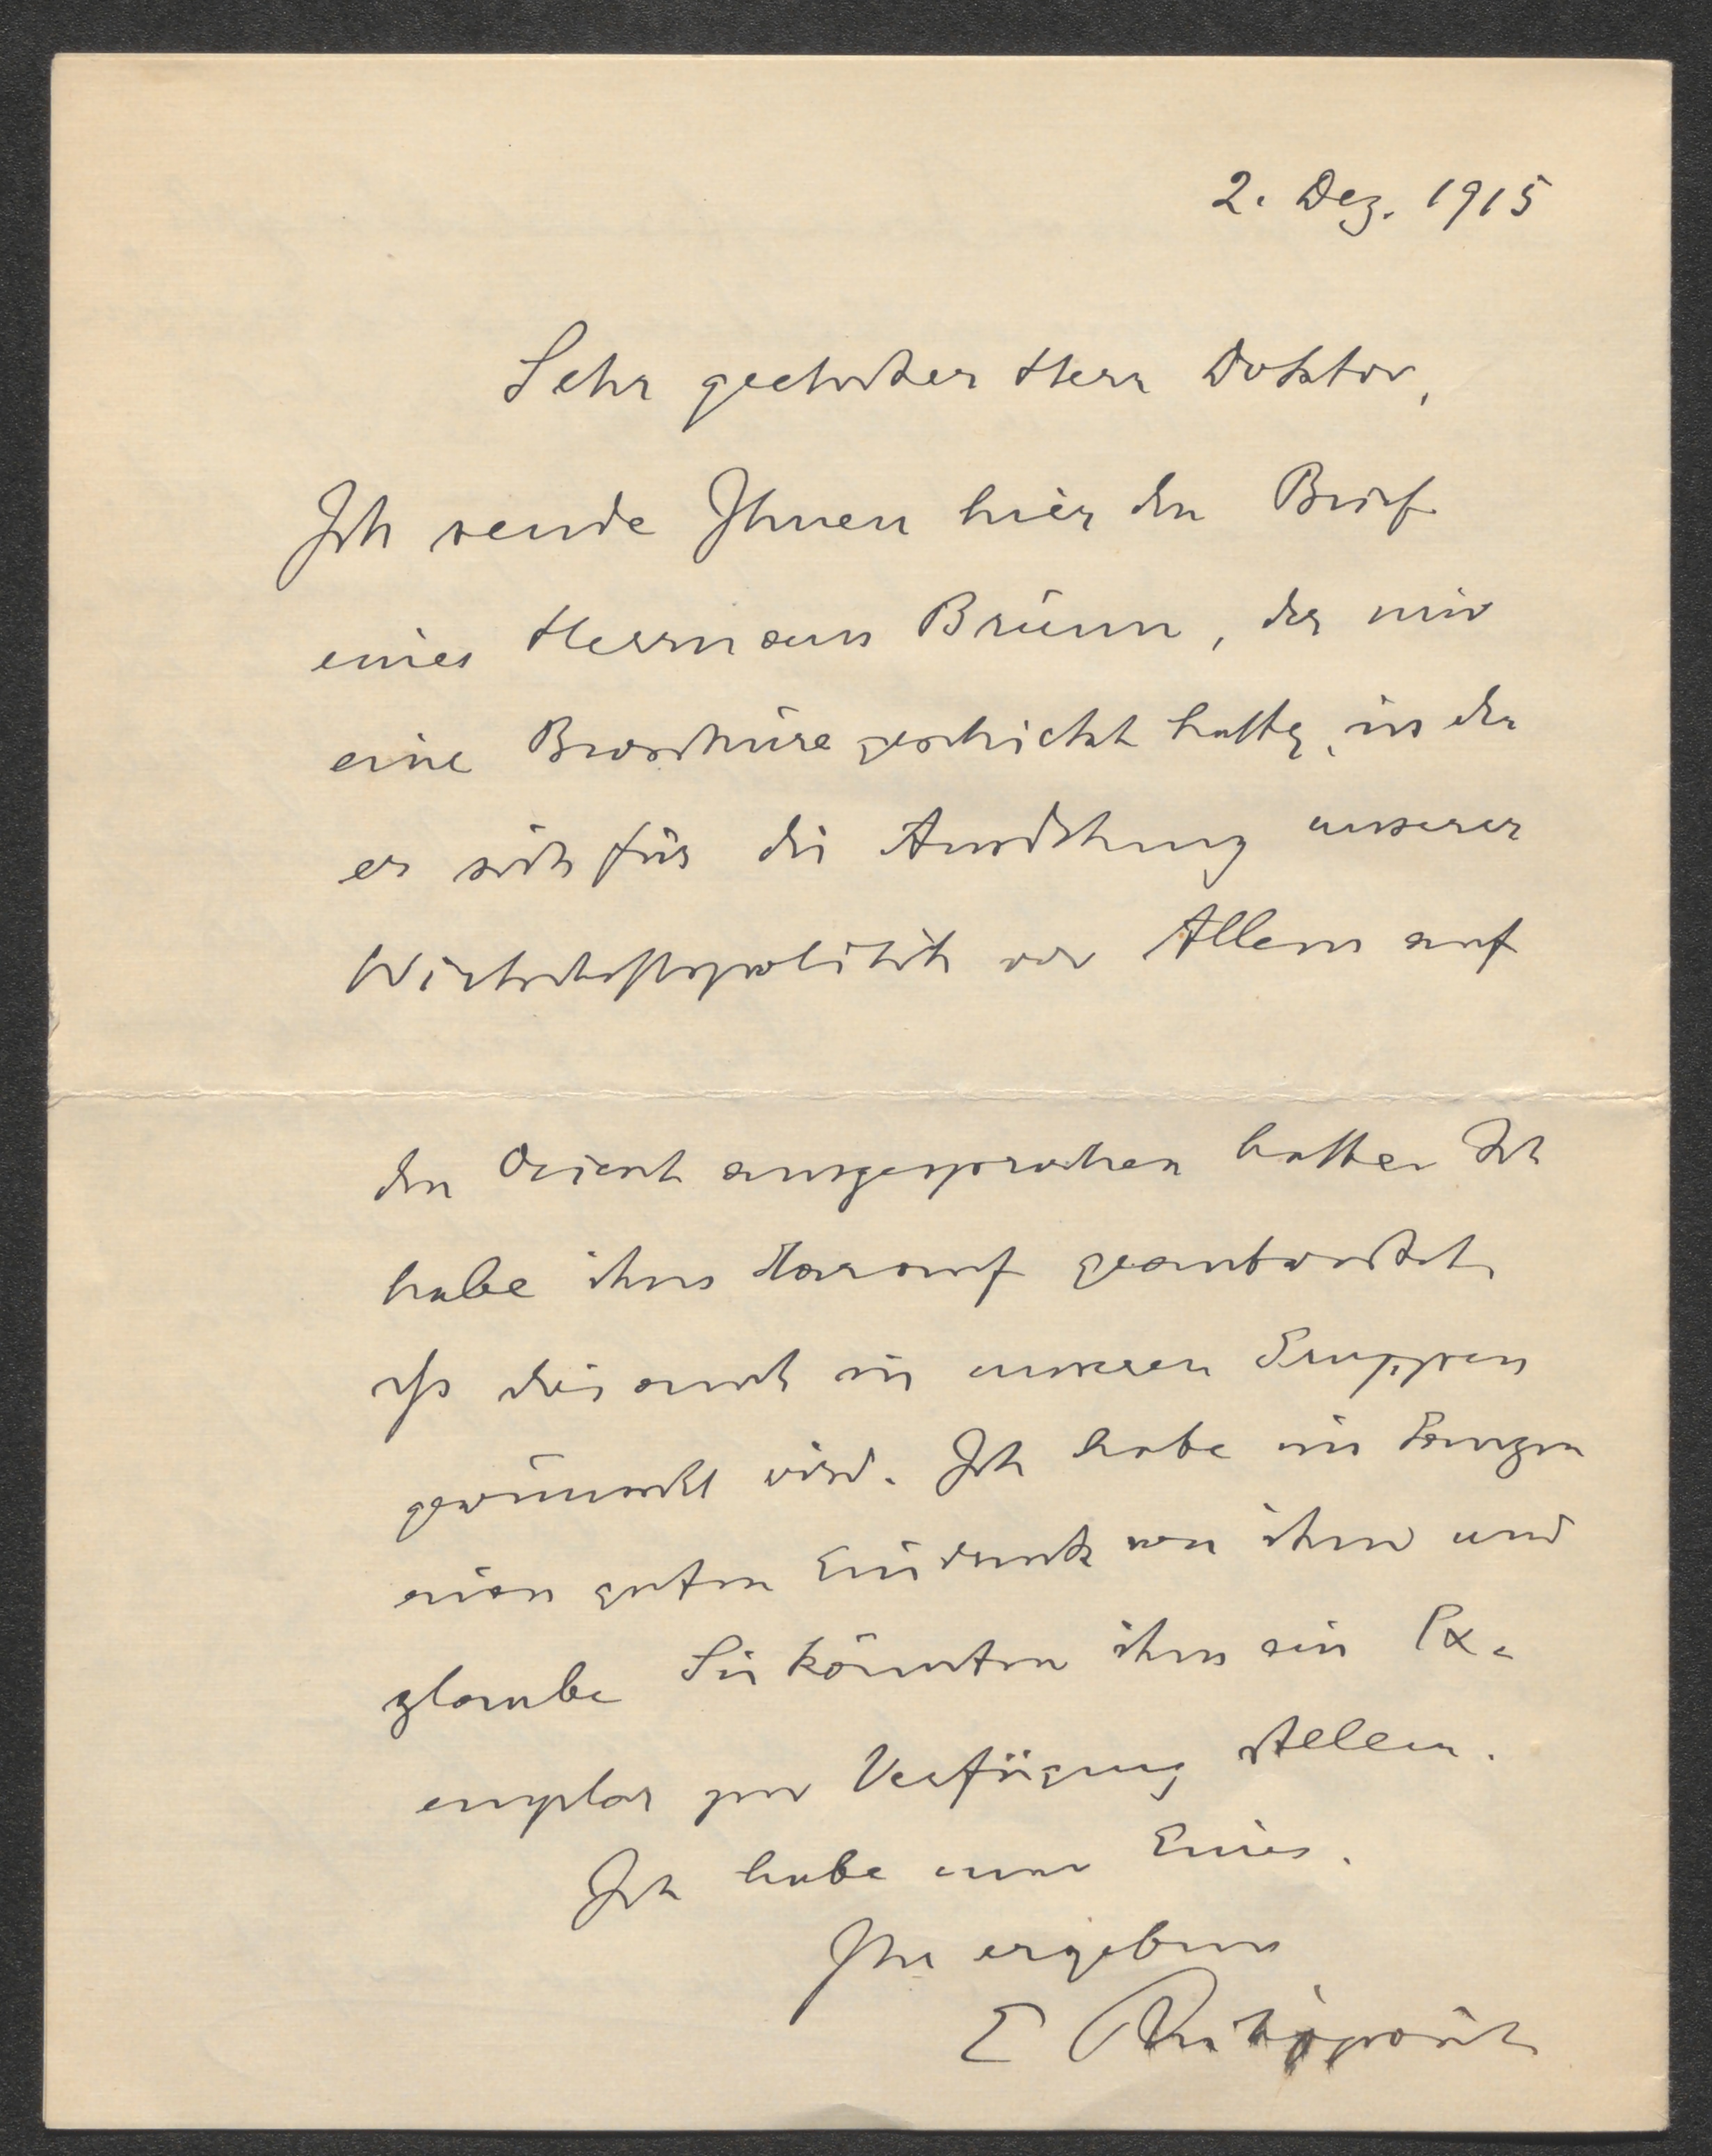 2. Dez. 1915
Sehr geehrter Herr Doktor,
Ich sende Ihnen hier den Brief
eines Hermann Brünn, der mir
eine Broschüre geschickt hatte, in der
er sich für die Ausdehnung unserer
Wirtschaftspolitik vor Allem auf
den Orient ausgesprochen hatte. Ich
habe ihm darauf geantwortet,
dies auch in unseren Gruppen
gewünscht wird. Ich habe im Ganzen
einen guten Eindruck von ihm und
glaube Sie könnten ihm ein Ex-
emplar zur Verfügung stellen.
Ich habe nur Eines.
Ihr ergebener
E Philippovich